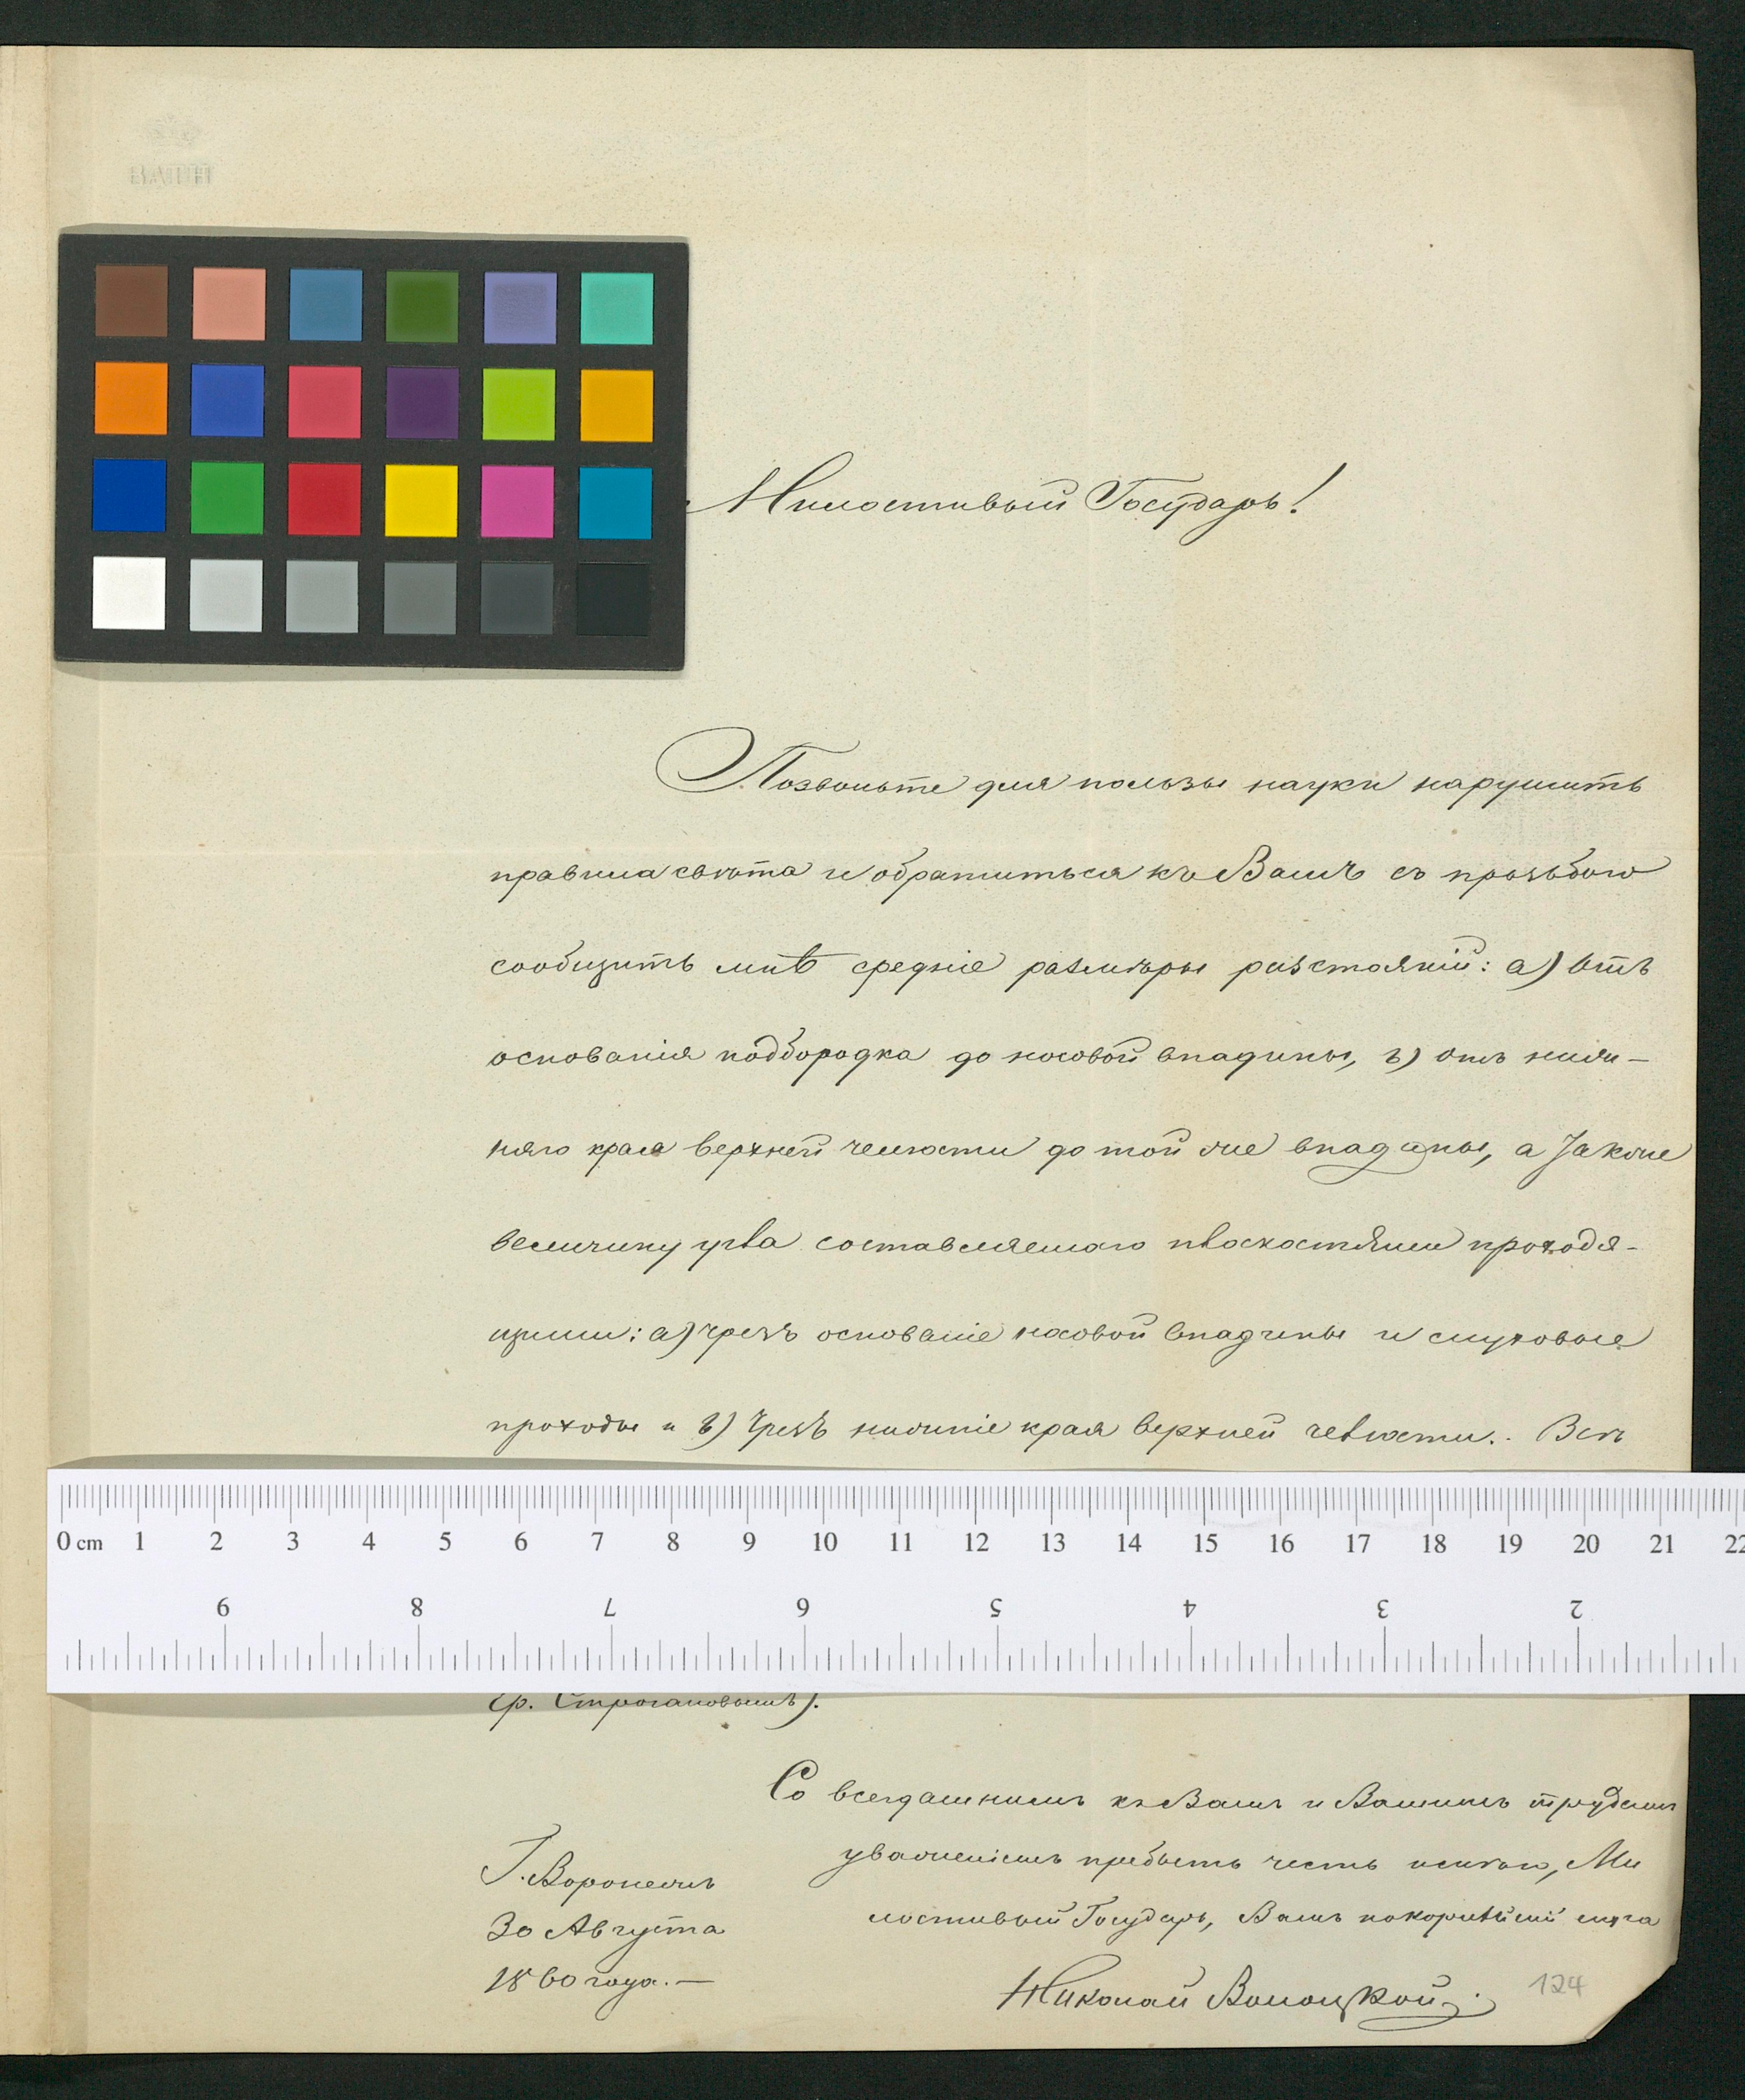 Милостивый Государь!
Позвольте для пользы науки нарушить
правила свѣта и обратиться къ Вамъ съ прозьбою
сообщить мнѣ средніе размѣры разстояній: а) отъ
основанія подбородка до носовой впадины, в) отъ ниж-
няго края верхней челюсти до той же впадины, а также
величину угла составляемаго плоскостями проходя-
щими: а) чрезъ основаніе носовой впадины и слуховые
проходы и в) чрезъ нижніе края верхней челюсти. Всѣ
0 cm 1 2 3 4 5 6 7 8 9 10 11 12 13 14 15 16 17 18 19 20 21 22
9 8 7 6 5 4 3 2
гр. Строгановымъ).
Со всегдашнимъ къ Вамъ и Вашимъ трудамъ
уваженіемъ пребыть честь имѣю, Ми
лостивый Государь, Вашъ покорнѣйшій слуга
Г. Воронежъ
30 Августа
1860 года.—
Николай Волоцкой.
124